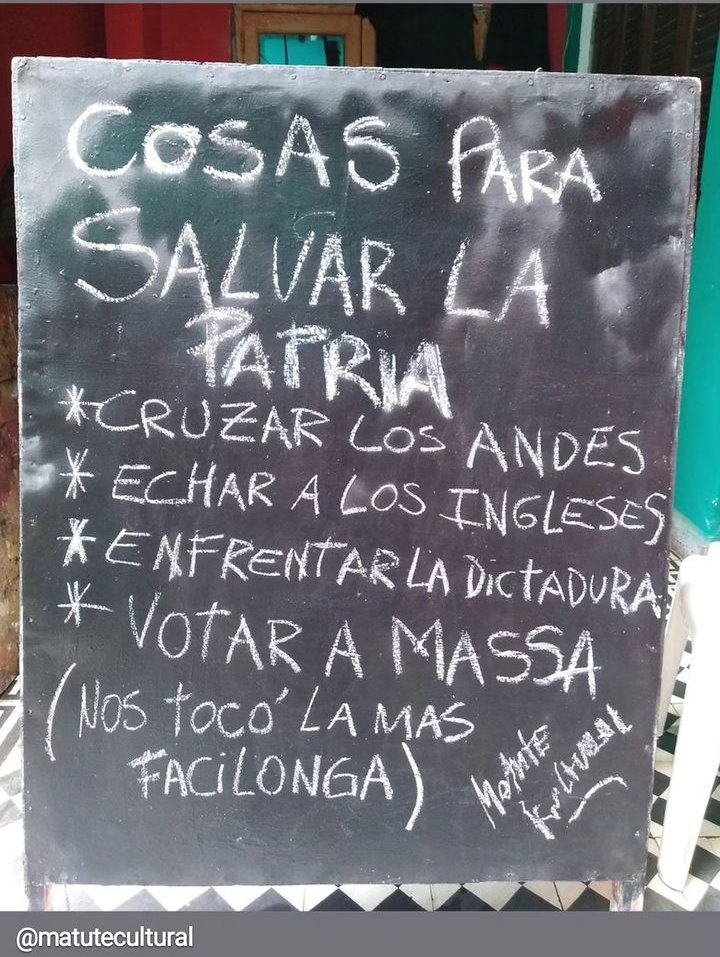 COSAS PARA
SALVAR LA
PATRIA
*CRUZAR LOS ANDES
* ECHAR A LOS INGLESES
* ENFRENTAR LA DICTADURA
* VOTAR A MASSA
(NOS TOCÓ LA MAS
FACILONGA)
@matutecultural